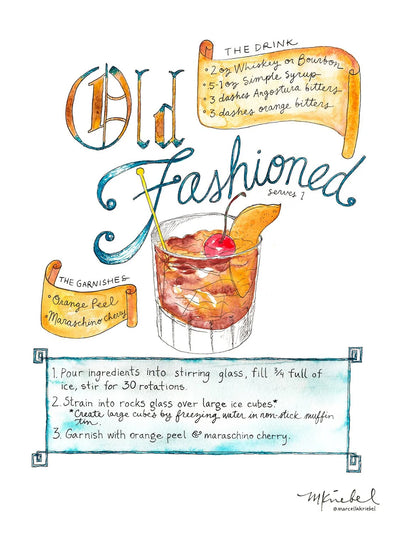 THE DRINK
• 2 oz Whiskey or Bourbon
• .5-1 oz Simple Syrup
• 3 dashes Angostura bitters
• 3 dashes orange bitters
Old
Fashioned
serves 1
THE GARNISHES
• Orange Peel
• Maraschino cherry
1. Pour ingredients into stirring glass, fill 3/4 full of
ice, stir for 30 rotations.
2. Strain into rocks glass over large ice cubes*
*Create large cubes by freezing water in non-stick muffin
tin.
3. Garnish with orange peel & maraschino cherry.
MKriebel
@marcellakriebel